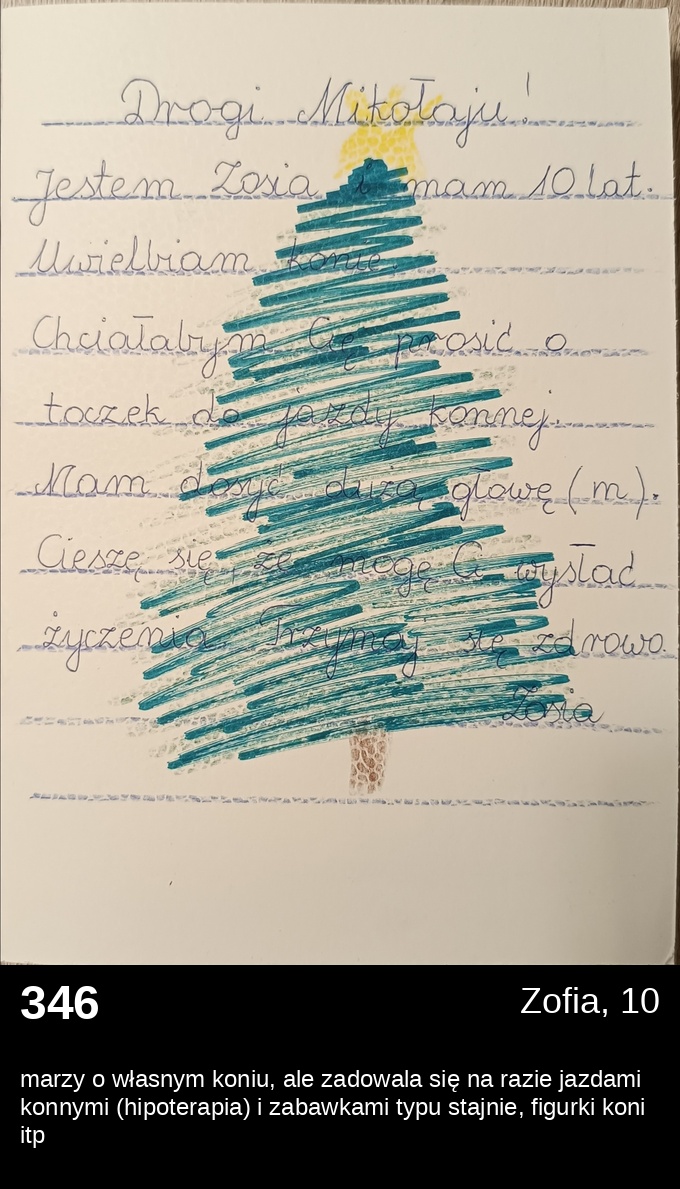 Drogi Mikołaju!
Jestem Zosia i mam 10 lat.
Uwielbiam konie.
Chciałabym Cię prosić o
toczek do jazdy konnej.
Mam dosyć dużą głowę (m).
Cieszę się, że mogę Ci wysłać
życzenia. Trzymaj się zdrowo.
Zosia
346
Zofia, 10
marzy o własnym koniu, ale zadowala się na razie jazdami
konnymi (hipoterapia) i zabawkami typu stajnie, figurki koni
itp